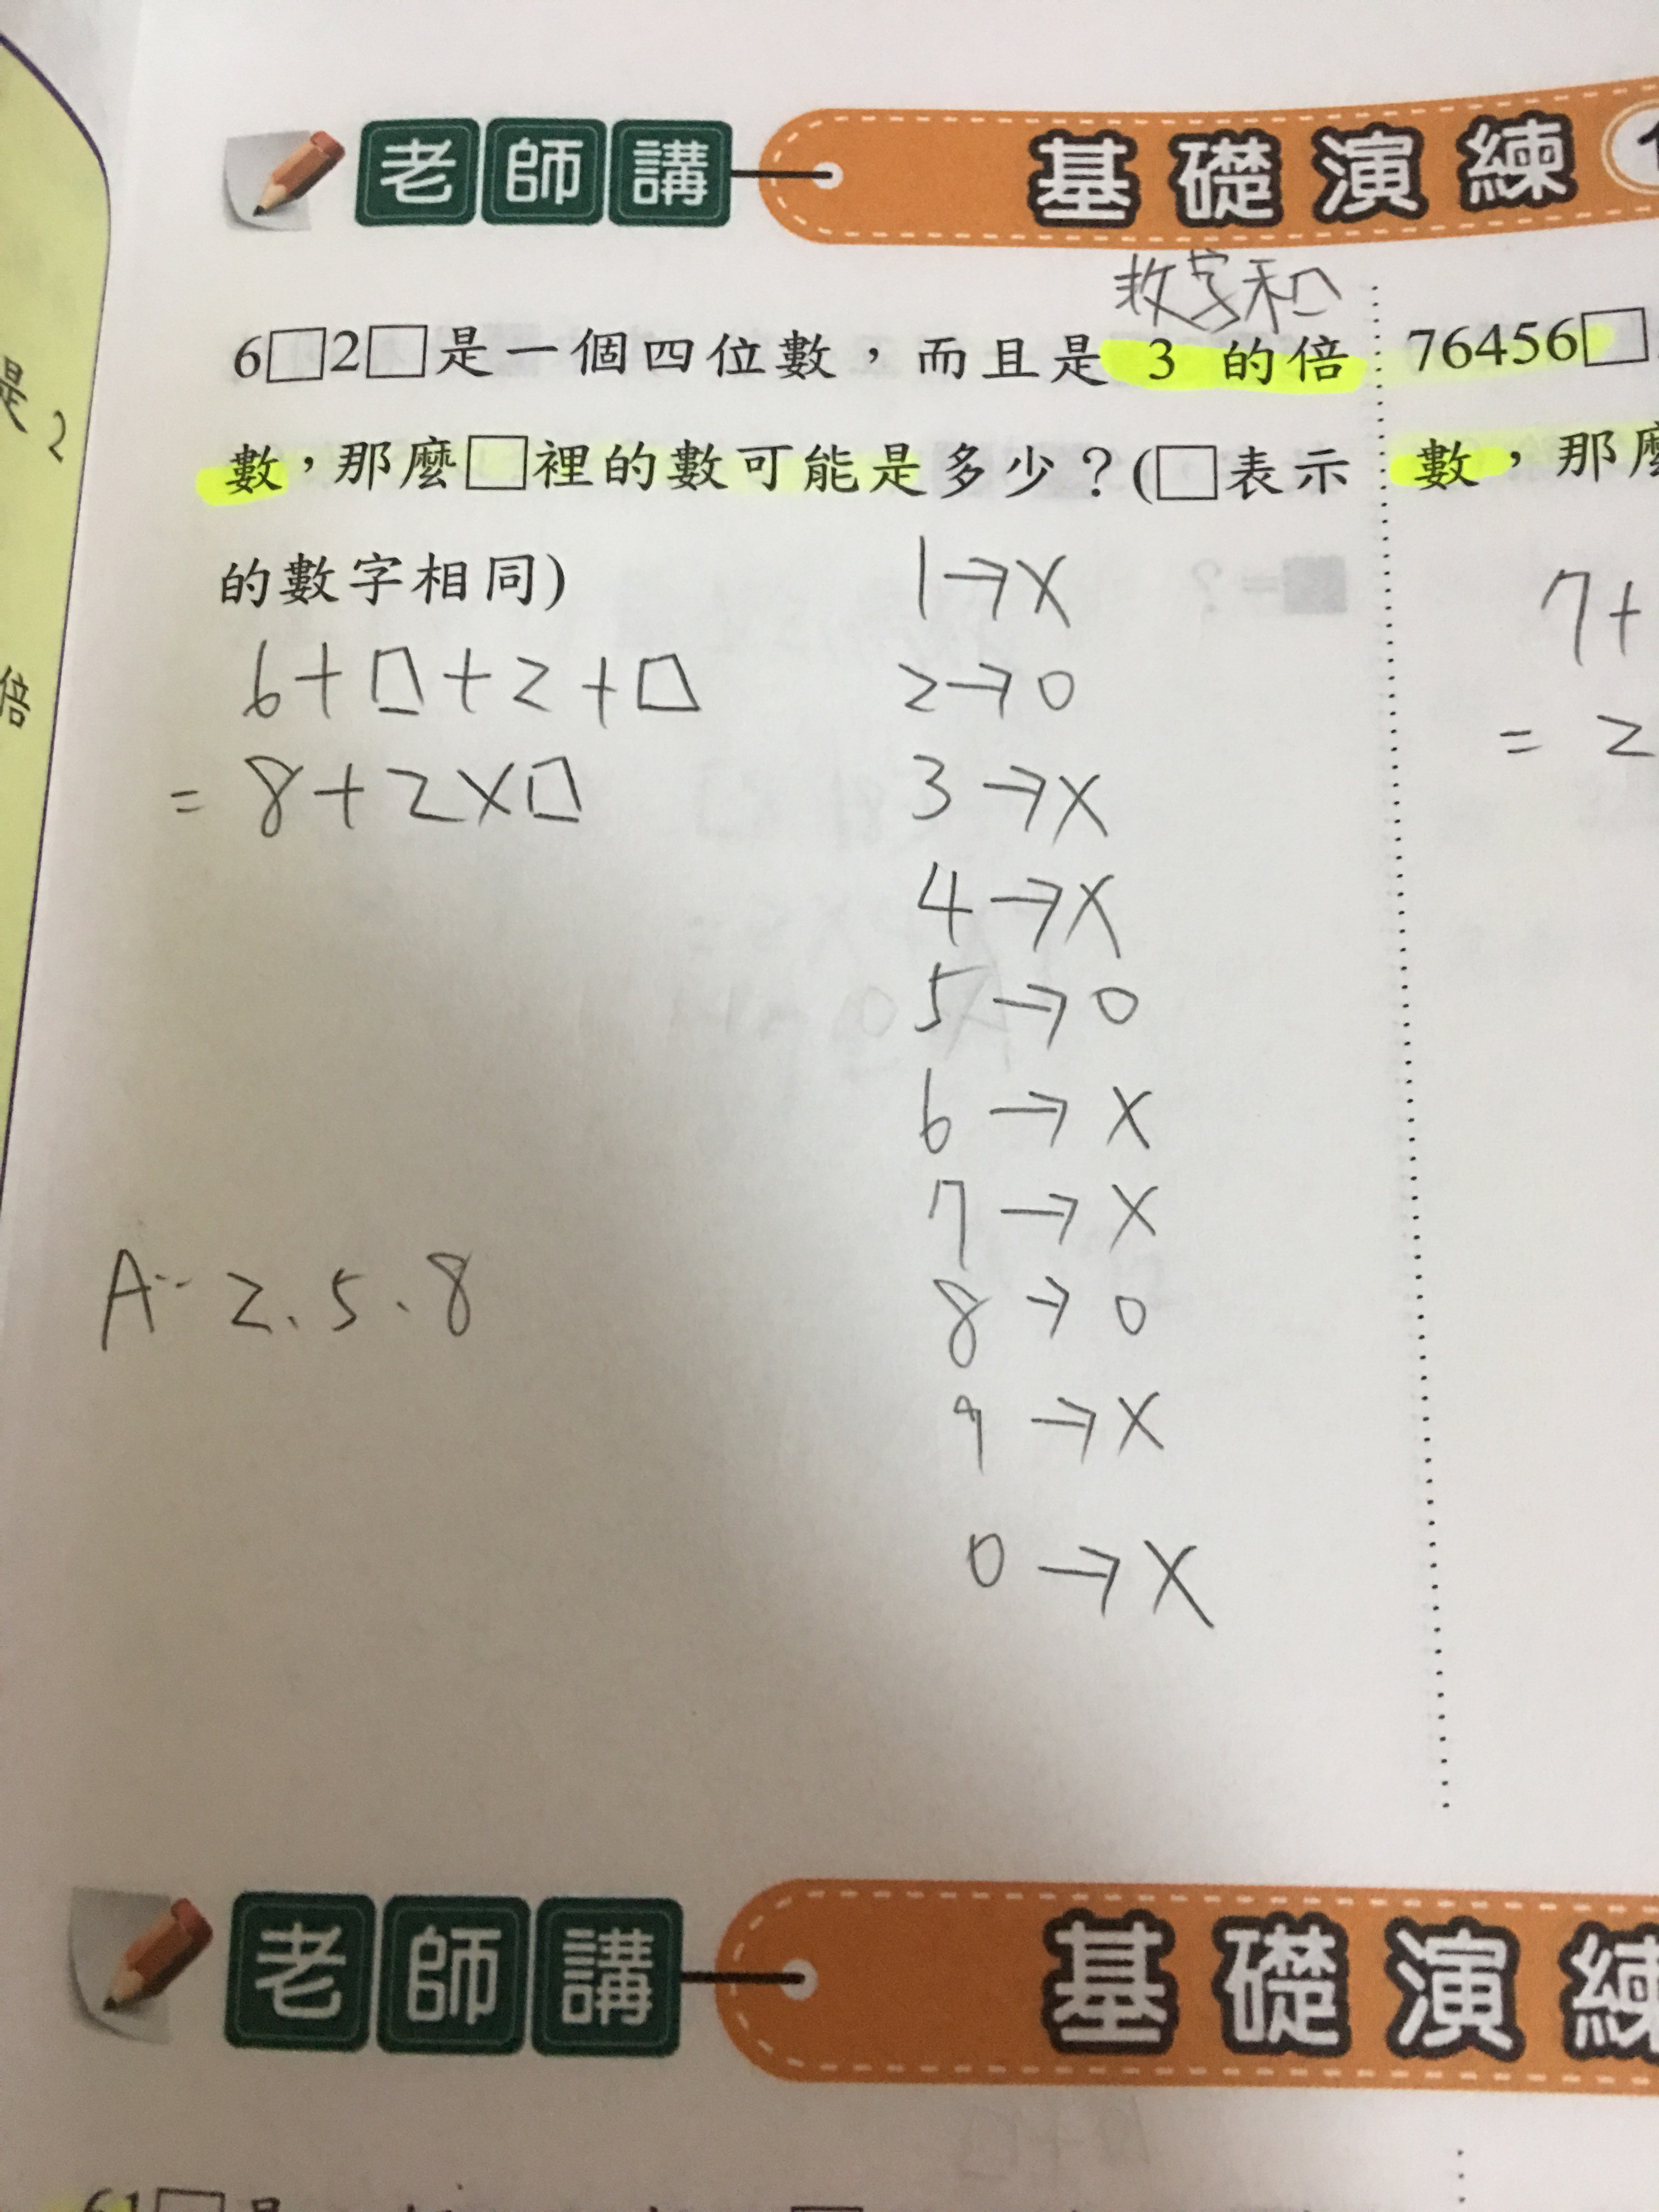 老師講 基礎演練
数字和
6□2□是一個四位數，而且是 3 的倍
數，那麼□裡的數可能是多少？(□表示
的數字相同)
6+□+2+□
= 8+2×□
1→X
2→0
3→X
4→X
5→0
6→X
7→X
8→0
9→X
0→X
A: 2、5、8
76456□
數，那麼
7+
= 2
是 2
倍
老師講 基礎演練
61□是